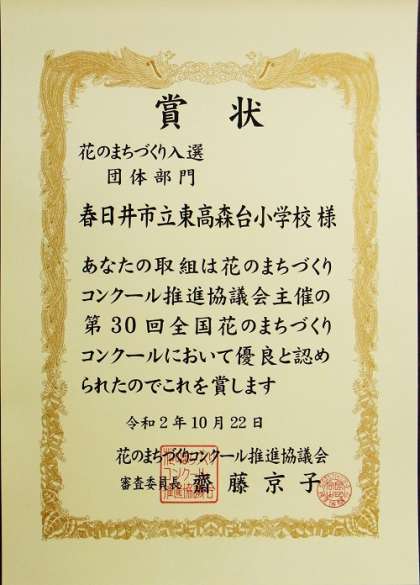 賞状
花のまちづくり入選
団体部門
春日井市立東高森台小学校 様
あなたの取組は花のまちづくり
コンクール推進協議会主催の
第30回全国花のまちづくり
コンクールにおいて優良と認め
られたのでこれを賞します
令和2年10月22日
花のまちづくりコンクール推進協議会
審査委員長 齋藤京子